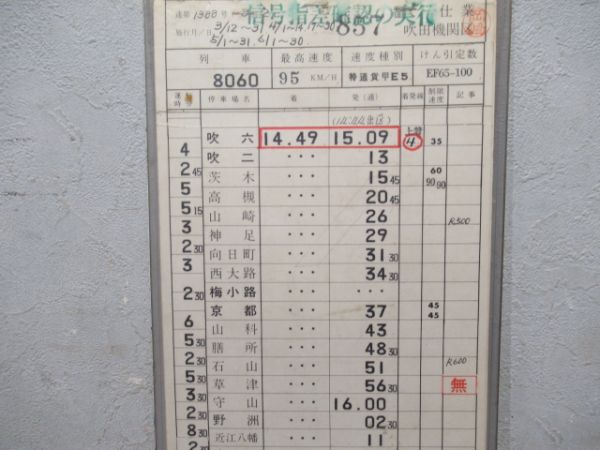 信号指差確認の実行
達第1388号
施行月/日 3/12~31 4/1~14. 17~30 837 仕業
5/1~31. 6/1~30. 吹田機関区
列車 最高速度 速度種別 けん引定数
8060 95 KM/H 特通貨甲E5 EF65-100
運転時 停車場名 着 発(通) 着発線 制限速度 記事
吹六 14.49 15.09 上 4 35
4
吹二 ・・・ 13
2 45 茨木 ・・・ 15 45 60 90 90
5 高槻 ・・・ 20 45
5 15 山崎 ・・・ 26 R300
3 神足 ・・・ 29
2 30 向日町 ・・・ 31 30
3 西大路 ・・・ 34 30
2 30 梅小路 ・・・ ・・・
京都 ・・・ 37 45 45
6 山科 ・・・ 43
5 30 膳所 ・・・ 48 30
2 30 石山 ・・・ 51 R600
5 30 草津 ・・・ 56 30 無
3 30 守山 ・・・ 16.00
2 30 野洲 ・・・ 02 30
8 30 近江八幡 ・・・ 11
2 30